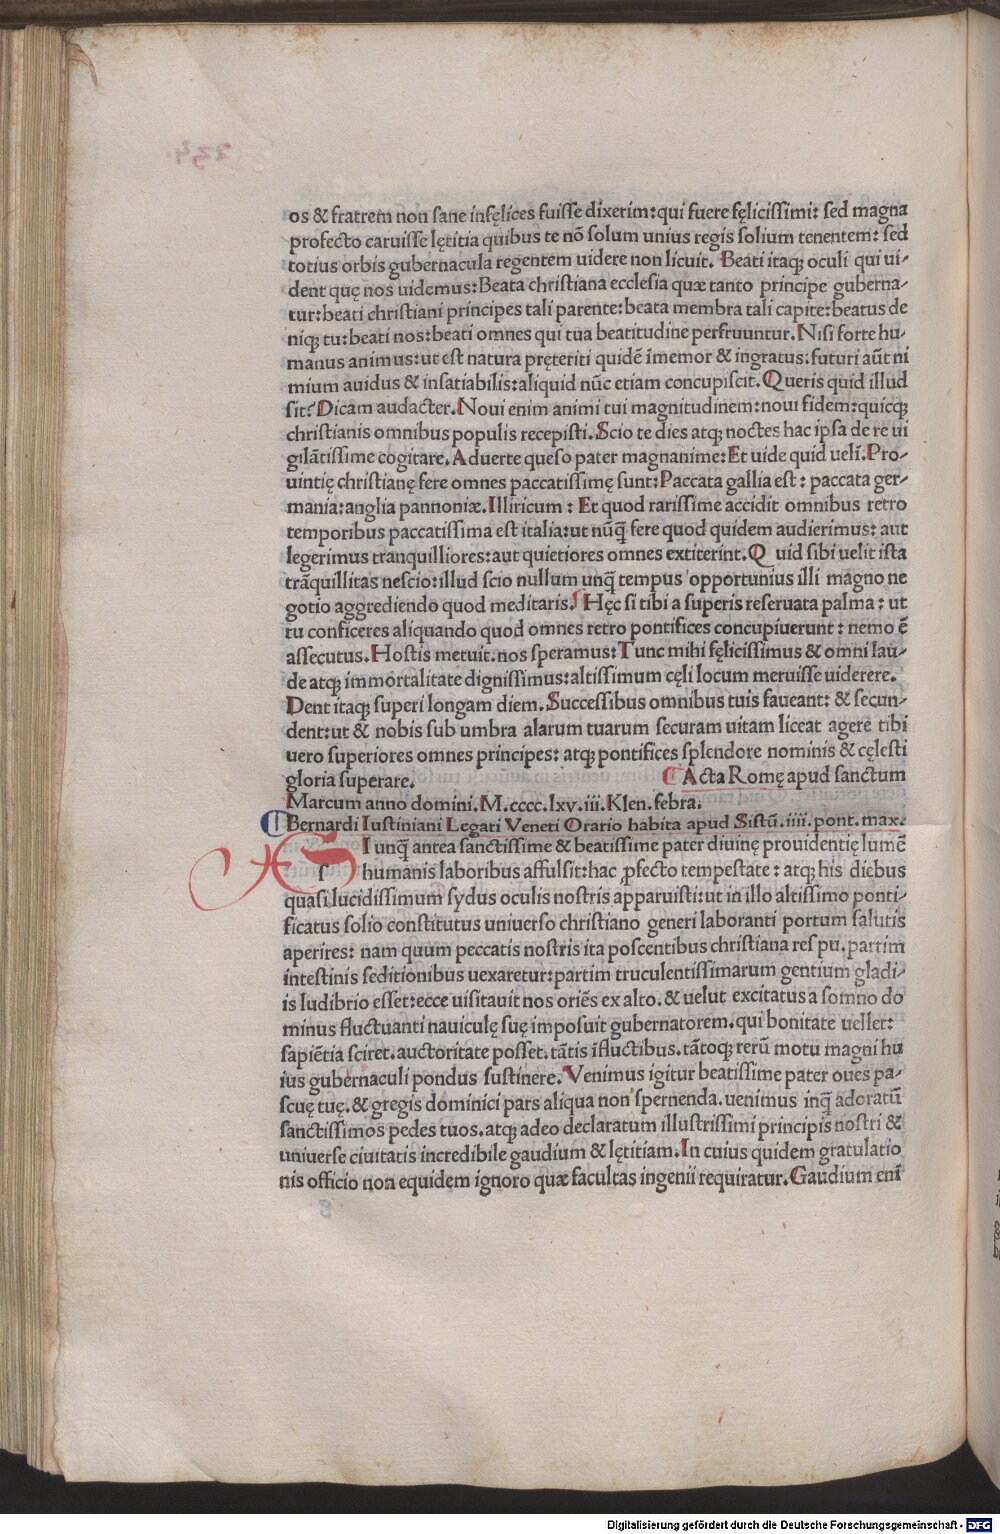 os & fratrem non sane infęlices fuisse dixerim: qui fuere fęlicissimi: sed magna
profecto caruisse lętitia quibus te nō solum unius regis solium tenentem: sed
totius orbis gubernacula regentem uidere non licuit. Beati itaqꝫ oculi qui ui-
dent quę nos uidemus: Beata christiana ecclesia quæ tanto principe guberna-
tur: beati christiani principes tali parente: beata membra tali capite: beatus de
niqꝫ tu: beati nos: beati omnes qui tua beatitudine perfruuntur. Nisi forte hu-
manus animus: ut est natura pręteriti quidē īmemor & ingratus: futuri aūt ni
mium auidus & insatiabilis: aliquid nūc etiam concupiscit. Queris quid illud
sit? Dicam audacter. Noui enim animi tui magnitudinem: noui fidem: quicqꝫ
christianis omnibus populis recepisti. Scio te dies atqꝫ noctes hac ipsa de re ui
gilātissime cogitare. Aduerte queso pater magnanime: Et uide quid uelī. Pro-
uintię christianę fere omnes paccatissimę sunt: Paccata gallia est: paccata ger-
mania: anglia pannoniæ. Illiricum: Et quod rarissime accidit omnibus retro
temporibus paccatissima est italia: ut nūq̄ fere quod quidem audierimus: aut
legerimus tranquilliores: aut quietiores omnes extiterint. Q uid sibi uelit ista
trāquillitas nescio: illud scio nullum unq̄ tempus opportunius illi magno ne
gotio aggrediendo quod meditaris. Hęc si tibi a superis reseruata palma: ut
tu conficeres aliquando quod omnes retro pontifices concupiuerunt: nemo ē
assecutus. Hostis metuit. nos speramus: Tunc mihi fęlicissimus & omni lau-
de atqꝫ immortalitate dignissimus: altissimum cęli locum meruisse uiderere.
Dent itaqꝫ superi longam diem. Successibus omnibus tuis faueant: & secun-
dent: ut & nobis sub umbra alarum tuarum securam uitam liceat agere tibi
uero superiores omnes principes: atqꝫ pontifices splendore nominis & cęlesti
gloria superare. Acta Romę apud sanctum
Marcum anno domini. M.cccc.lxv.iii. Klen. febra.
Bernardi Iustiniani Legati Veneti Orario habita apud Sistū. iiii. pont. max.
s I unq̄ antea sanctissime & beatissime pater diuinę prouidentię lumē
humanis laboribus affulsit: hac ꝓfecto tempestate: atqꝫ his diebus
quasi lucidissimum sydus oculis nostris apparuisti: ut in illo altissimo ponti-
ficatus solio constitutus uniuerso christiano generi laboranti portum salutis
aperires: nam quum peccatis nostris ita poscentibus christiana res pu. partim
intestinis seditionibus uexaretur: partim truculentissimarum gentium gladi-
is ludibrio esset: ecce uisitauit nos oriēs ex alto. & uelut excitatus a somno do
minus fluctuanti nauiculę suę imposuit gubernatorem. qui bonitate uellet:
sapiētia sciret. auctoritate posset. tātis īfluctibus. tātoqꝫ rerū motu magni hu
ius gubernaculi pondus sustinere. Venimus igitur beatissime pater oues pa-
scuę tuę. & gregis dominici pars aliqua non spernenda. uenimus inq̄ adoratū
sanctissimos pedes tuos. atqꝫ adeo declaratum illustrissimi principis nostri &
uniuerse ciuitatis incredibile gaudium & lętitiam. In cuius quidem gratulatio
nis officio non equidem ignoro quæ facultas ingenii requiratur. Gaudium enī
Digitalisierung gefördert durch die Deutsche Forschungsgemeinschaft - DFG